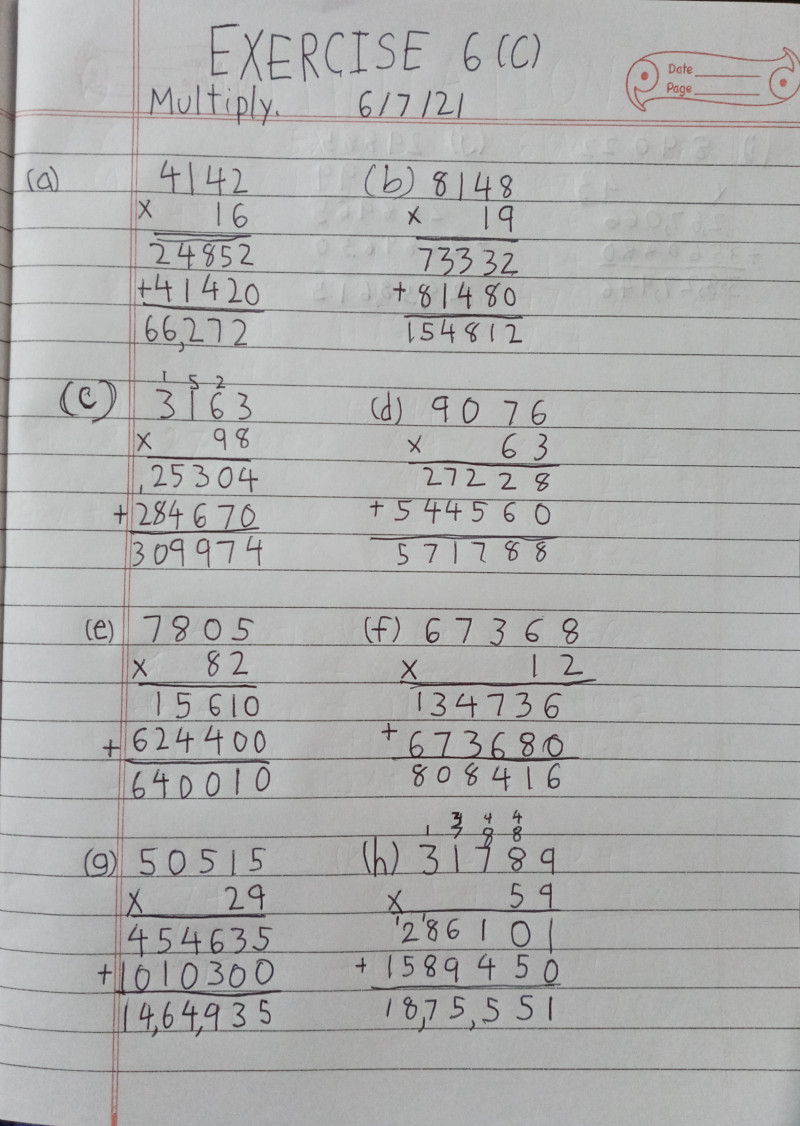 EXERCISE 6 (C)
Date
Page
Multiply. 6/7/21
(a) 4142 (b) 8148
x 16 x 19
24852 73332
+41420 +81480
66,272 154812
1 5 2
(c) 3163 (d) 9076
x 98 x 63
25304 27228
+284670 +544560
309974 571788
(e) 7805 (f) 67368
x 82 x 12
15610 134736
+624400 +673680
640010 808416
1 3 4 4
7 8 8
(g) 50515 (h) 31789
x 29 x 59
454635 286101
+1010300 +1589450
14,64,935 18,75,551